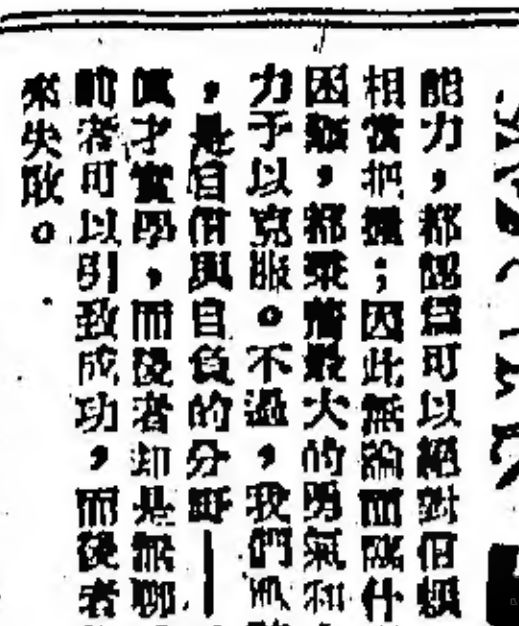 能力，都認爲可以絕對信賴
相當把握；因此無論面臨什
困難，都秉着最大的勇氣和
力予以克服。不過，我們
，是自信與自負的分野—
眞才實學，而後者却是無聊
前者可以引致成功，而後者
來失敗。